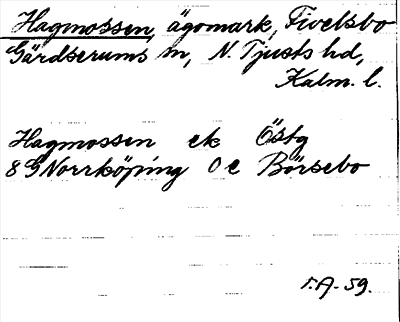 Hagmossen, ägomark, Fivelsbo
Gärdserums sn, N. Tjusts hd,
Kalm. l.
Hagmossen ek Östg
8 G Norrköping 0 e Börsebo
I.A-59.